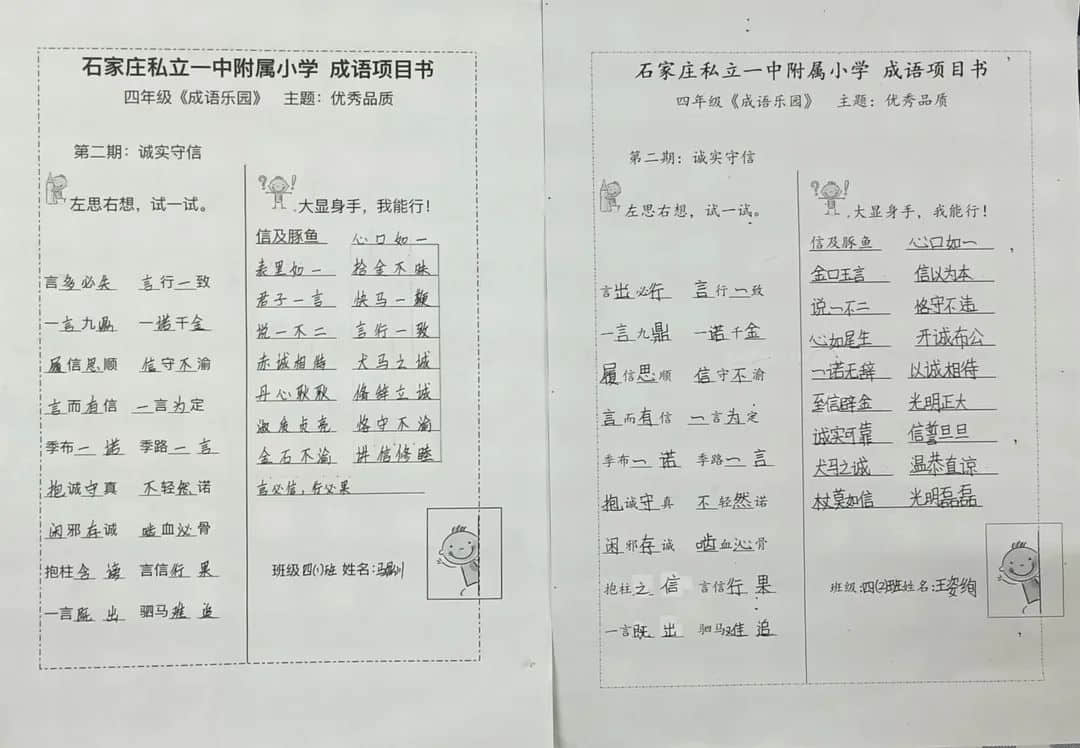 石家庄私立一中附属小学 成语项目书
四年级《成语乐园》 主题：优秀品质
第二期：诚实守信
左思右想，试一试。
言多必失 言行一致
一言九鼎 一诺千金
履信思顺 信守不渝
言而有信 一言为定
季布一诺 季路一言
抱诚守真 不轻然诺
闲邪存诚 啮血沁骨
抱柱含诲 言信行果
一言既出 驷马难追
大显身手，我能行！
信及豚鱼 心口如一
表里如一 拾金不昧
君子一言 快马一鞭
说一不二 言行一致
赤诚相待 犬马之诚
丹心耿耿 脩辞立诚
淑质贞亮 恪守不渝
金石不渝 讲信修睦
言必信，行必果
班级四(1)班 姓名:马
石家庄私立一中附属小学 成语项目书
四年级《成语乐园》 主题：优秀品质
第二期：诚实守信
左思右想，试一试。
言出必行 言行一致
一言九鼎 一诺千金
履信思顺 信守不渝
言而有信 一言为定
季布一诺 季路一言
抱诚守真 不轻然诺
闲邪存诚 啮血沁骨
抱柱之信 言信行果
一言既出 驷马难追
大显身手，我能行！
信及豚鱼 心口如一
金口玉言 信以为本
说一不二 恪守不违
心如尾生 开诚布公
一诺无辞 以诚相待
至信辟金 光明正大
诚实可靠 信誓旦旦
犬马之诚 温恭直谅
杖莫如信 光明磊磊
班级:四(2)班姓名:王姿绚